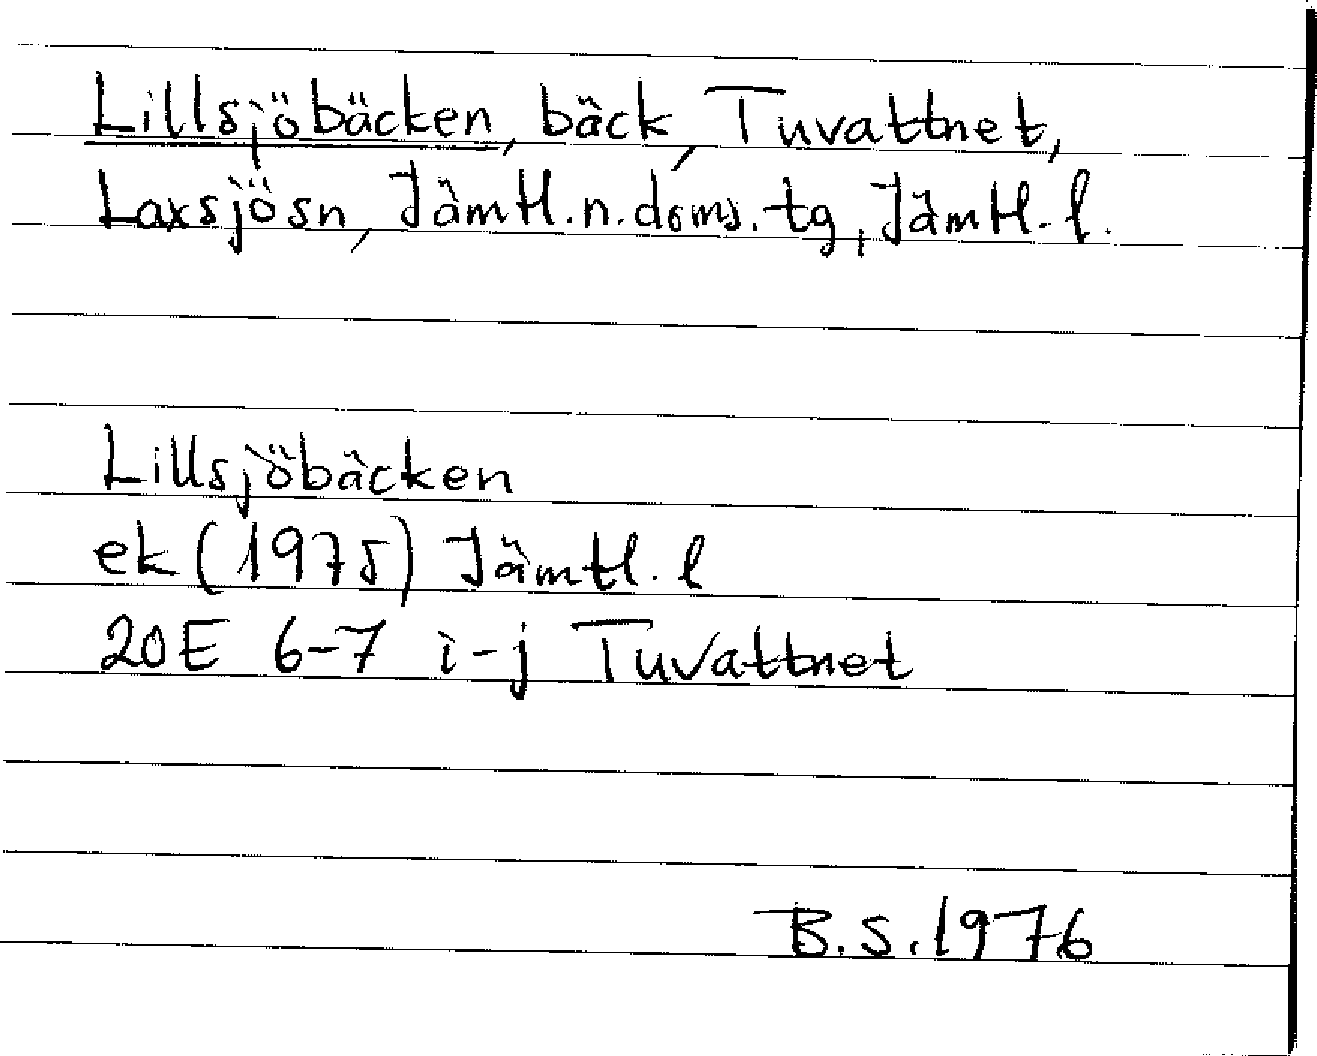 Lillsjöbäcken, bäck, Tuvattnet,
Laxsjösn, Jämtl.n.doms.tg, Jämtl.l.
Lillsjöbäcken
ek (1975) Jämtl.l
20E 6-7 i-j Tuvattnet
B.S.1976